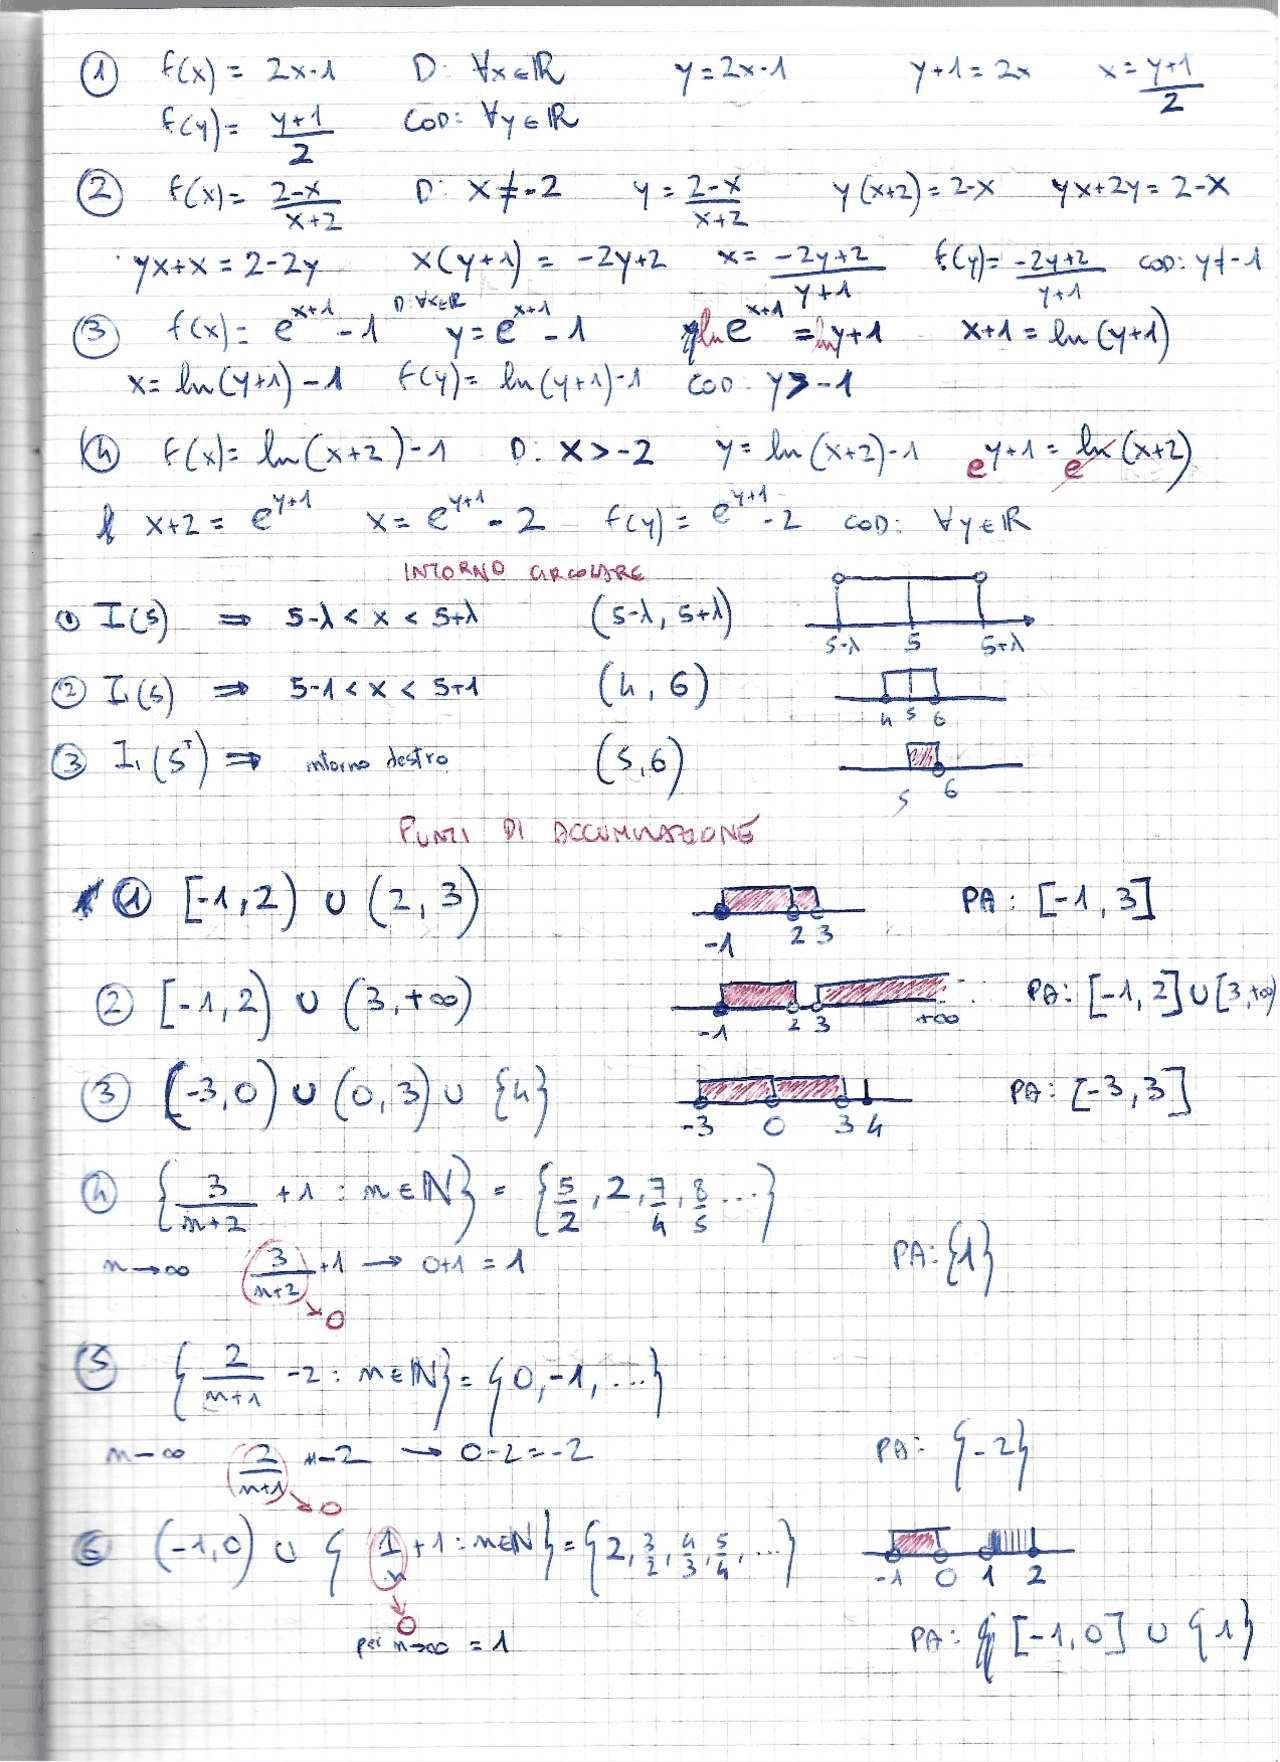 ① f(x) = 2x-1 D: ∀x∈ℝ y=2x-1 y+1=2x x=\frac{y+1}{2}
f(y)= \frac{y+1}{2} COD: ∀y∈ℝ
② f(x)= \frac{2-x}{x+2} D: x≠-2 y=\frac{2-x}{x+2} y(x+2)=2-x yx+2y=2-x
yx+x=2-2y x(y+1)=-2y+2 x=\frac{-2y+2}{y+1} f(y)=\frac{-2y+2}{y+1} COD: y≠-1
③ f(x)=e^{x+1}-1 D:∀x∈ℝ y=e^{x+1}-1 ln e^{x+1}=ln y+1 x+1=ln(y+1)
x=ln(y+1)-1 f(y)=ln(y+1)-1 COD: y>-1
④ f(x)=ln(x+2)-1 D: x>-2 y=ln(x+2)-1 e^{y+1}=e^{ln(x+2)}
x+2=e^{y+1} x=e^{y+1}-2 f(y)=e^{y+1}-2 COD: ∀y∈ℝ
INTORNO CIRCOLARE
① I(5) ⇒ 5-λ<x<5+λ (5-λ, 5+λ) 5-λ 5 5+λ
② I₁(5) ⇒ 5-1<x<5+1 (4, 6) 4 5 6
③ I₁(5⁺) ⇒ intorno destro (5,6) 5 6
PUNTI DI ACCUMULAZIONE
① [-1,2) ∪ (2,3) -1 2 3 PA: [-1,3]
② [-1,2) ∪ (3,+∞) -1 2 3 +∞ PA: [-1,2]∪[3,+∞)
③ (-3,0) ∪ (0,3) ∪ {4} -3 0 3 4 PA: [-3,3]
④ {\frac{3}{n+2}+1 : n∈ℕ} = {\frac{5}{2}, 2, \frac{7}{4}, \frac{8}{5} ...}
n→∞ \frac{3}{n+2}+1 → 0+1=1 PA: {1}
0
⑤ {\frac{2}{n+1}-2 : n∈ℕ} = {0,-1,...}
n→∞ \frac{2}{n+1}-2 → 0-2=-2 PA: {-2}
0
⑥ (-1,0) ∪ {\frac{1}{n}+1 : n∈ℕ} = {2, \frac{3}{2}, \frac{4}{3}, \frac{5}{4}, ...} -1 0 1 2
0
per n→∞ =1 PA: [-1,0] ∪ {1}